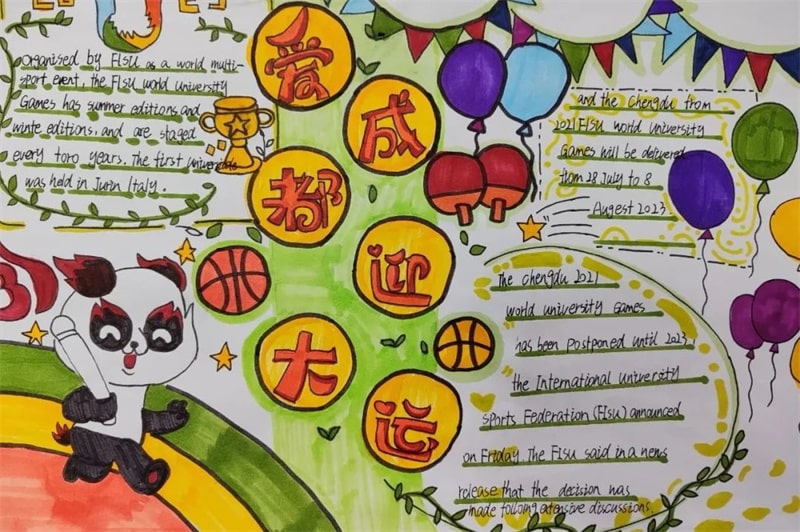 Organised by FISU as a world multi-
sport event, the FISU world university
Games has summer editions and
winte editions, and are staged
every toro years. The first universiade
was held in Jurin Italy.
爱
成
都
迎
大
运
and the Chengdu from
2021 FISU world university
Games will be delivered
from 28 July to 8
Augest 2023
The chengdu 2021
world university Games
has been postponed until 2023,
the International university
sports Federation (FISU) announced
on Friday. The FISU said in a news
release that the decision was
made following extensive discussions.